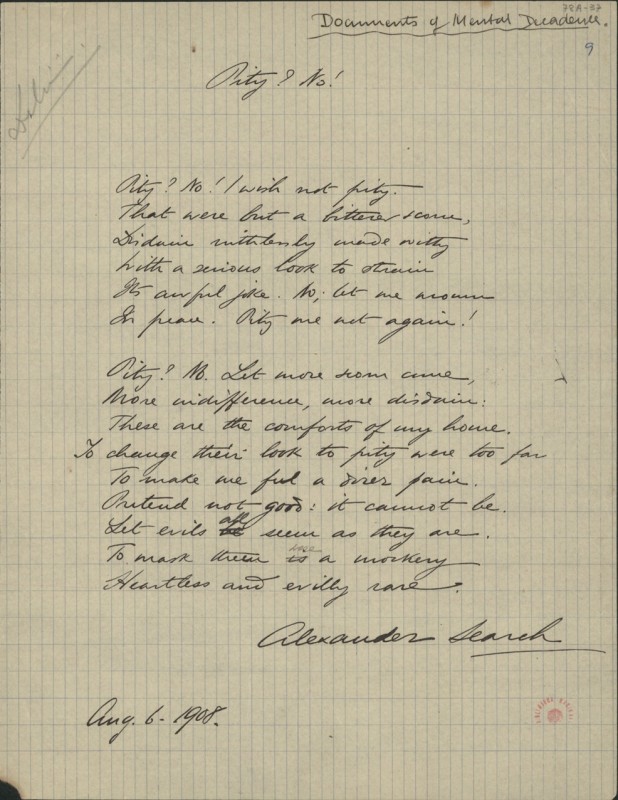 78A-37
Documents of Mental Decadence.
9
Pity? No!
Delirium
Pity? No! I wish not pity.
That were but a bitterer scorn,
Disdain ruthlessly made witty
With a serious look to strain
Its awful joke. No; let me mourn
In peace. Pity me not again!
Pity? No. Let more scorn come,
More indifference, more disdain:
These are the comforts of my home.
To change their look to pity were too far
To make me feel a direr pain.
Pretend not good: it cannot be.
Let evils all seem as they are.
To mask them is a mockery
were
Heartless and evilly rare.
Alexander Search
Aug. 6 - 1908.